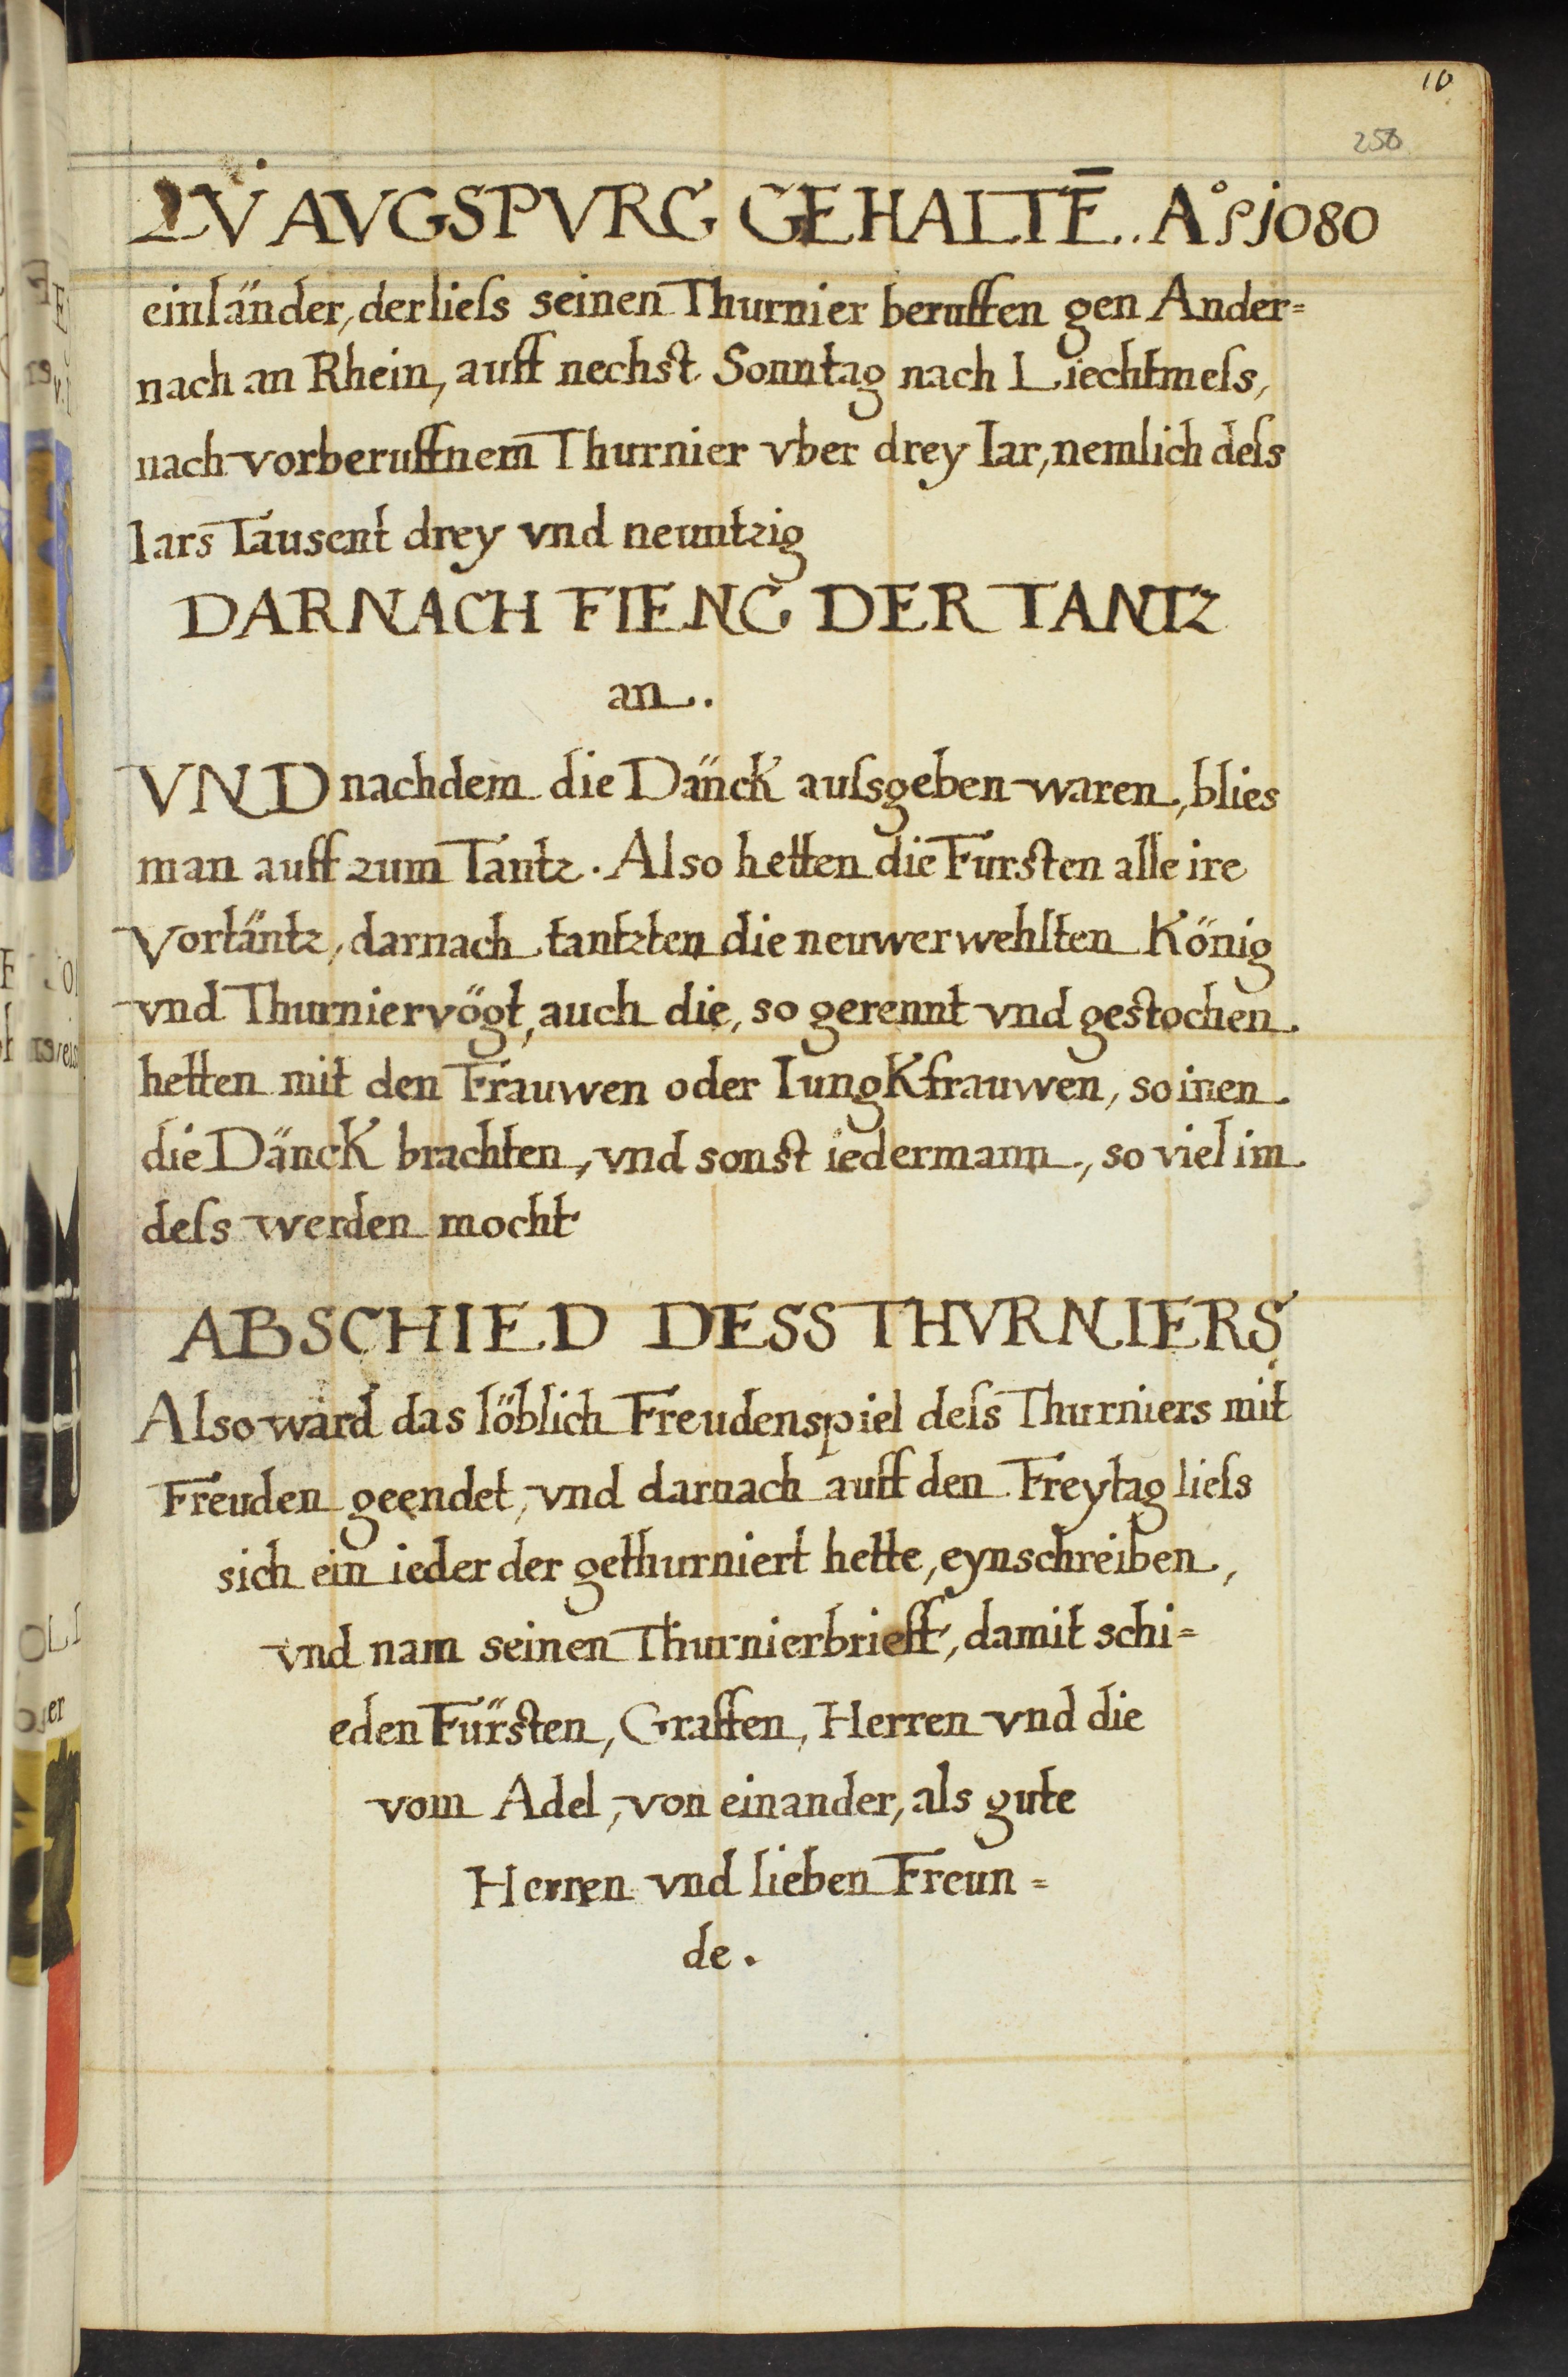 10
258
ZV AVGSPVRG GEHALTĒ. A° 1080
einländer, der liess seinen Thurnier beruffen gen Ander=
nach an Rhein, auff nechst Sonntag nach Liechtmess,
nach vorberuffnem Thurnier vber drey Iar, nemlich dess
Iars Tausent drey vnd neuntzig
DARNACH FIENG DER TANTZ
an.
VND nachdem die Dänck aussgeben waren, blies
man auff zum Tantz. Also hetten die Fursten alle ire
Vortäntz, darnach tantzten die neuwerwehlten König
vnd Thurniervögt, auch die, so gerennt vnd gestochen
hetten mit den Frauwen oder Iungkfrauwen, so inen
die Dänck brachten, vnd sonst iedermann, so viel im
dess werden mocht
ABSCHIED DESS THVRNIERS
Also ward das löblich Freudenspiel dess Thurniers mit
Freuden geendet, vnd darnach auff den Freytag liess
sich ein ieder der gethurniert hette, eynschreiben,
vnd nam seinen Thurnierbrieff, damit schi=
eden Fürsten, Graffen, Herren vnd die
vom Adel, von einander, als gute
Herren vnd lieben Freun=
de.